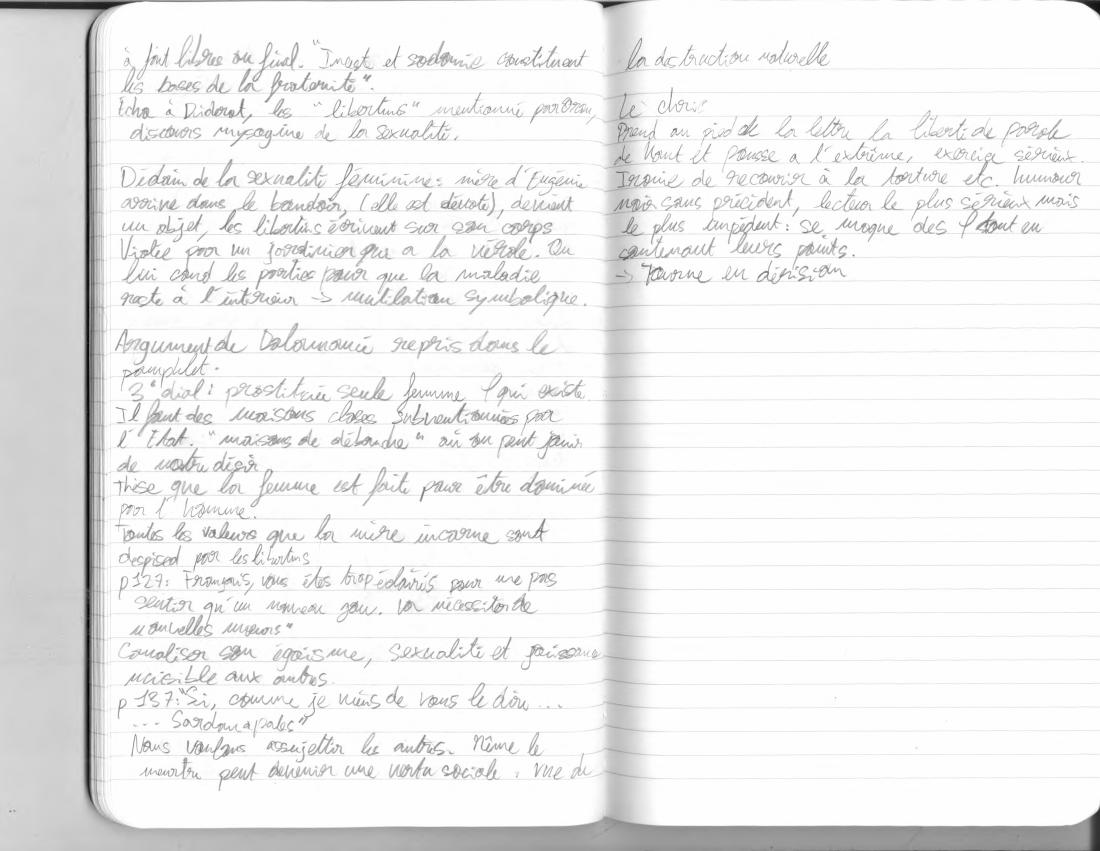 à font libres au final. "Inceste et sodomie constituent
les bases de la fraternité".
Echo à Diderot, les "libertins" mentionné par
discours mysogine de la sexualité.
Dédain de la sexualité féminine: mère d'Eugénie
arrive dans le boudoir, (elle est dévote), devient
un objet, les libertins écrivent sur son corps
Violée par un jardinier qui a la vérole. On
lui coud les parties pour que la maladie
reste à l'intérieur -> mutilation symbolique.
Argument de Dolmancé repris dans le
pamphlet.
3° dial: prostituée seule femme φ qui existe.
Il faut des maisons closes subventionnées par
l'Etat. "maisons de débauche" où on peut jouir
de notre désir
Thèse que la femme est faite pour être dominée
par l'homme.
Toutes les valeurs que la mère incarne sont
despised par les libertins
p127: Français, vous êtes trop éclairés pour ne pas
sentir qu'un nouveau gou. va nécessiter de
nouvelles mœurs"
Canaliser son égoïsme, sexualité et jouissance
nuisible aux autres.
p 137: "Si, comme je viens de vous le dire ...
... Sardanapales"
Nous voulons assujettir les autres. Même le
meurtre peut devenir une vertu sociale: vue de
la destruction naturelle
Le
Prend au pied de la lettre la liberté de parole
de Kant et pousse a l'extrême, exercice sérieux.
Ironie de recourir à la torture etc. humour
noir sans précédent, lecteur le plus sérieux mais
le plus impédent: se moque des φ tout en
soutenant leurs points.
-> Tourne en dérision